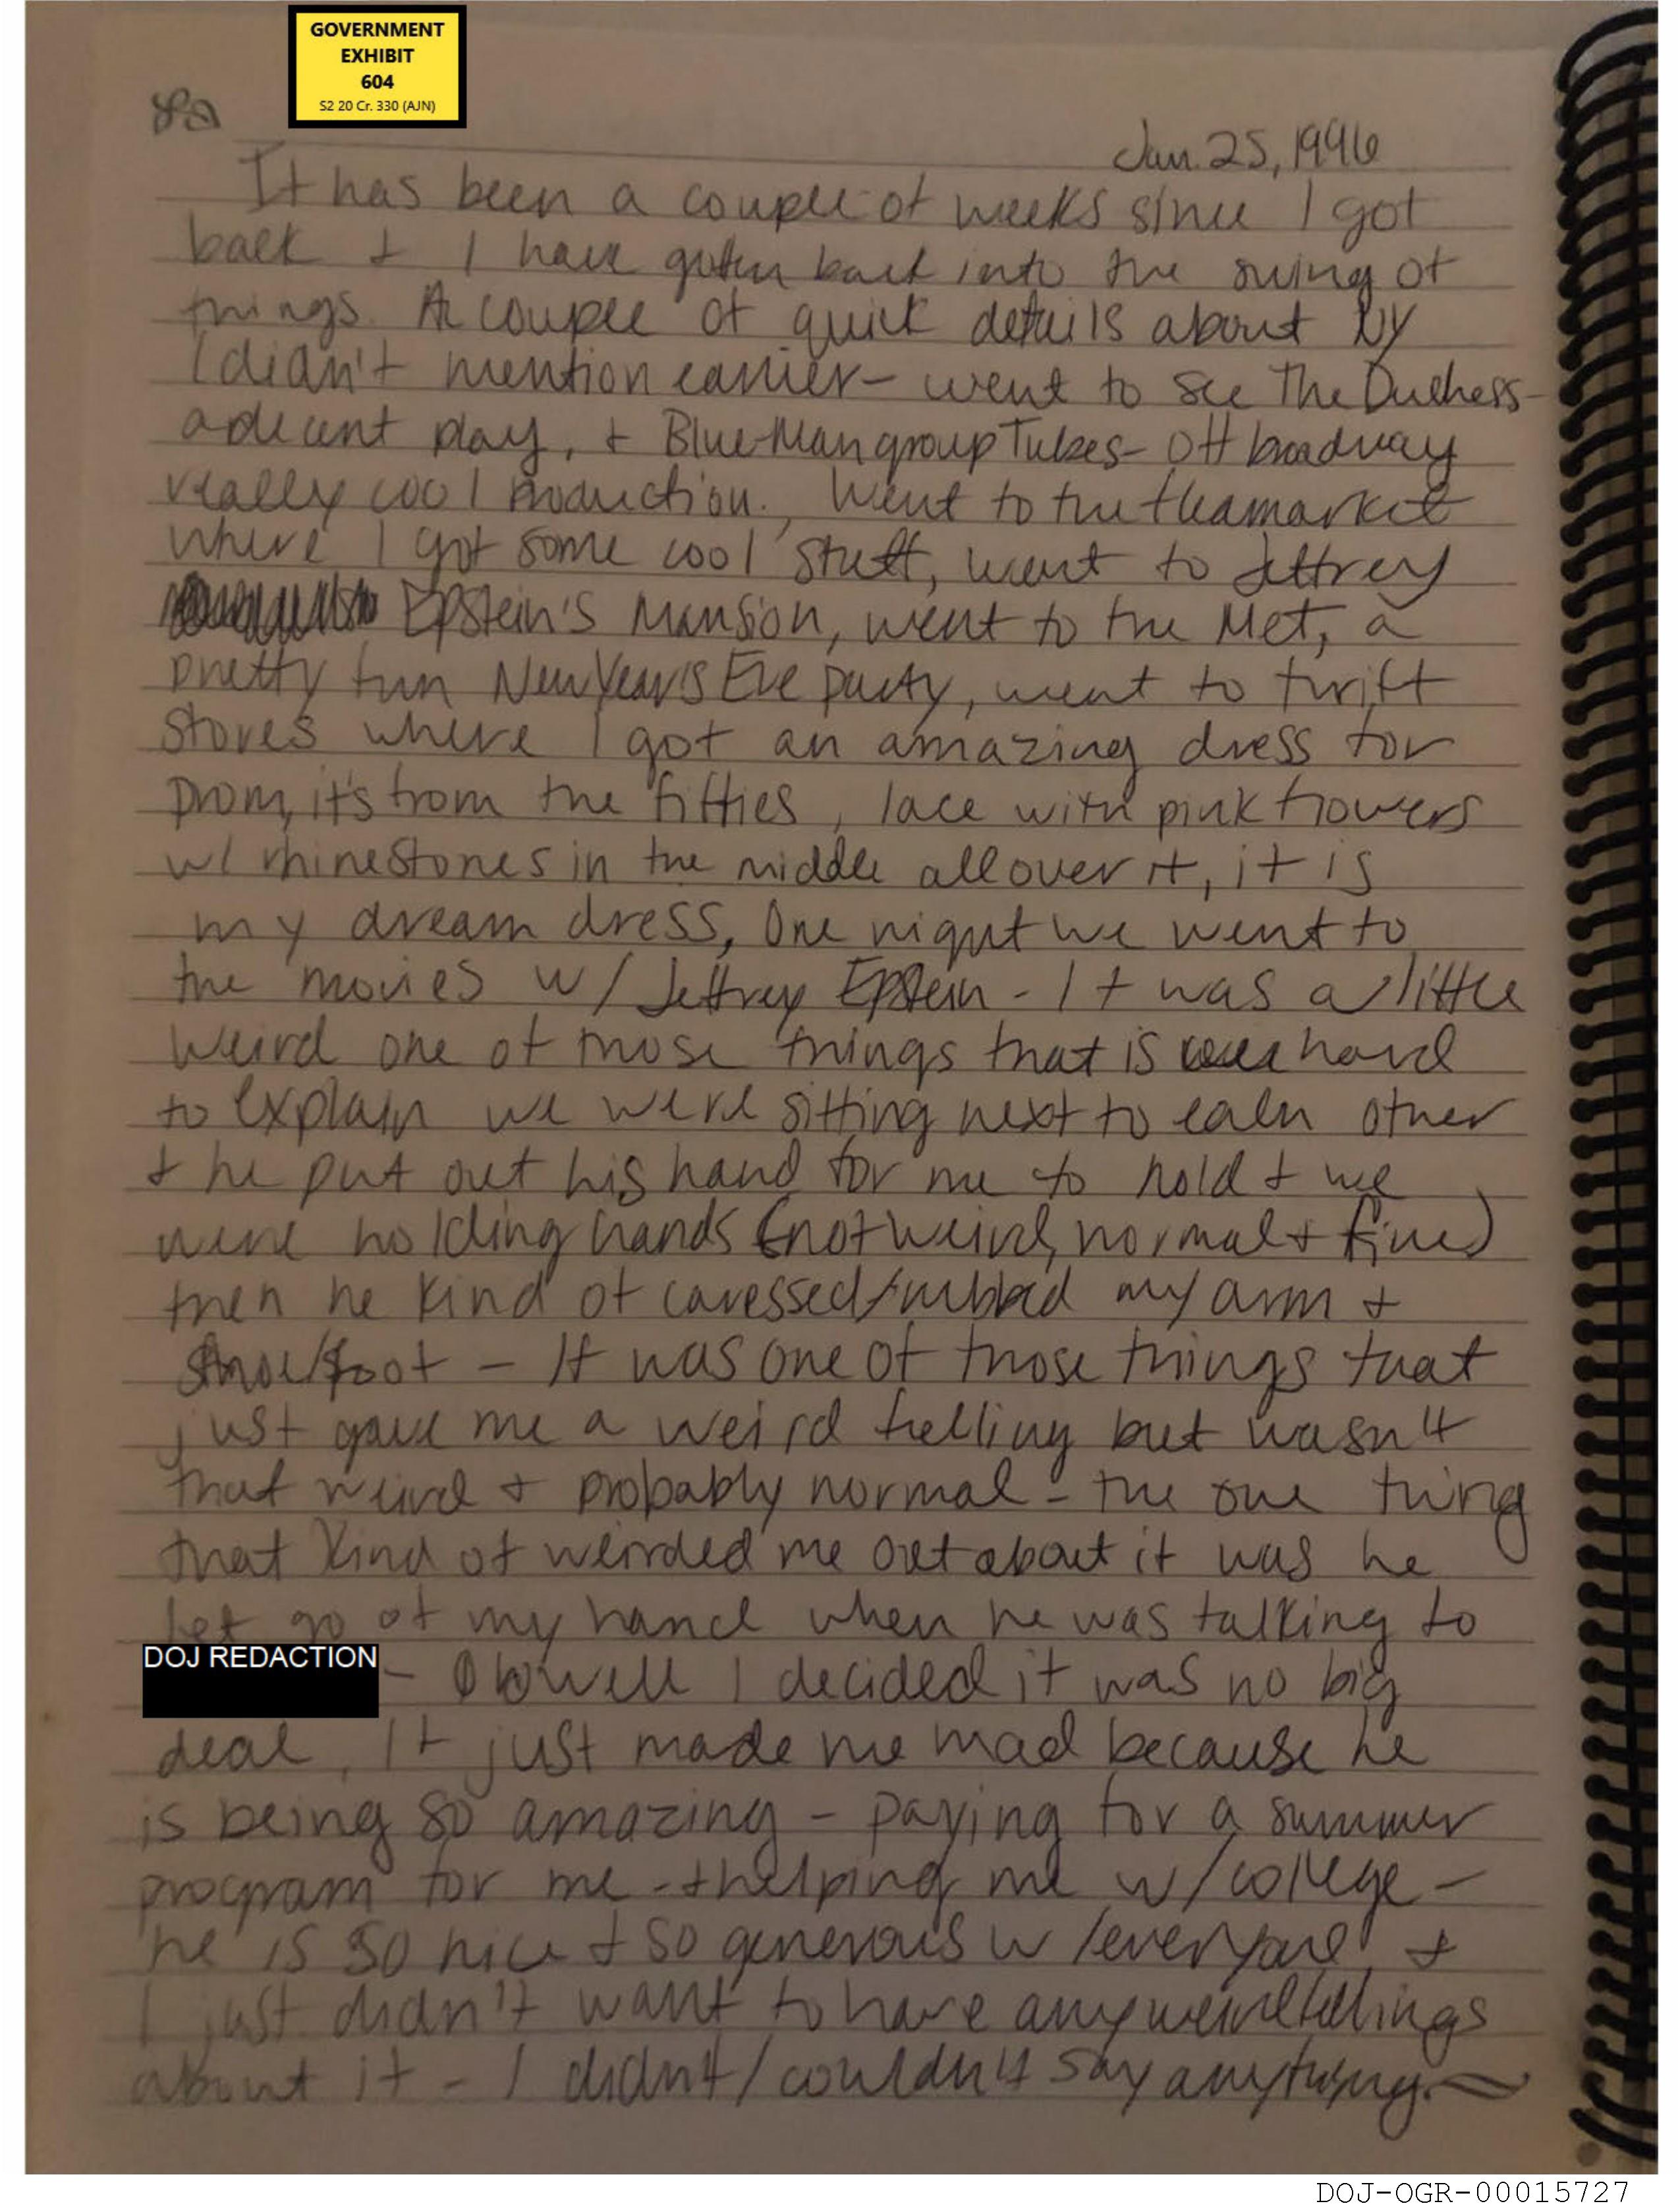 GOVERNMENT
EXHIBIT
604
S2 20 Cr. 330 (AJN)
Jan. 25, 1996
It has been a couple of weeks since I got
back + I have gotten back into the swing of
things. A couple of quick details about NY
I didn't mention earlier - went to see The Duchess -
a decent play, + Blue Man group Tubes - off broadway
really cool production. Went to the fleamarket
where I got some cool stuff, went to Jeffrey
Epstein's Mansion, went to the Met, a
pretty fun New Year's Eve party, went to thrift
stores where I got an amazing dress for
prom, it's from the fifties, lace with pink flowers
w/ rhinestones in the middle all over it, it is
my dream dress, One night we went to
the movies w/ Jeffrey Epstein - It was a little
weird one of those things that is hard
to explain we were sitting next to each other
+ he put out his hand for me to hold + we
were holding hands (not weird, normal + fine)
then he kind of caressed/rubbed my arm +
shoe/foot - It was one of those things that
just gave me a weird felling but wasn't
that weird + probably normal - the one thing
that kind of weirded me out about it was he
let go of my hand when he was talking to
DOJ REDACTION - O well I decided it was no big
deal, It just made me mad because he
is being so amazing - paying for a summer
program for me - + helping me w/ college -
he is so nice + so generous w/ everyone +
I just didn't want to have any weird fellings
about it - I didn't/couldn't say anything.
DOJ-OGR-00015727